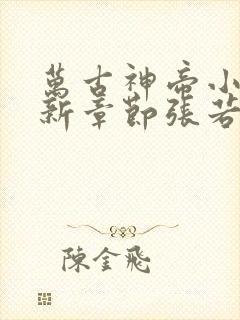 萬古神帝小
新章節張若
陳金飛